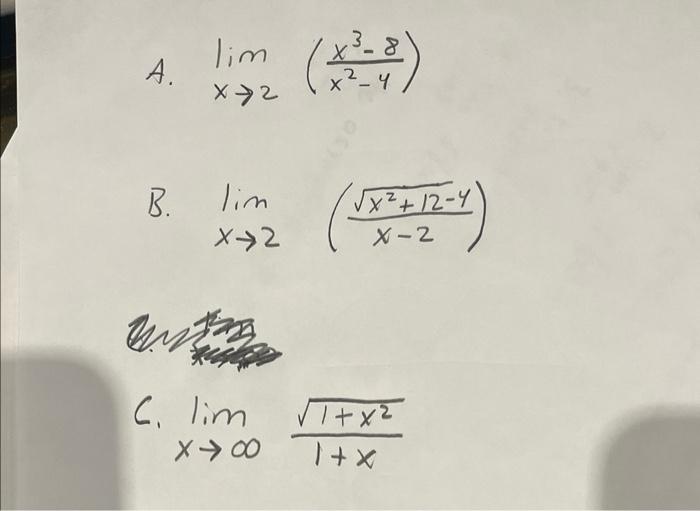 A. lim x→2 (x³-8 / x²-4)
B. lim x→2 (√x²+12-4 / x-2)
C. lim x→∞ √1+x² / 1+x